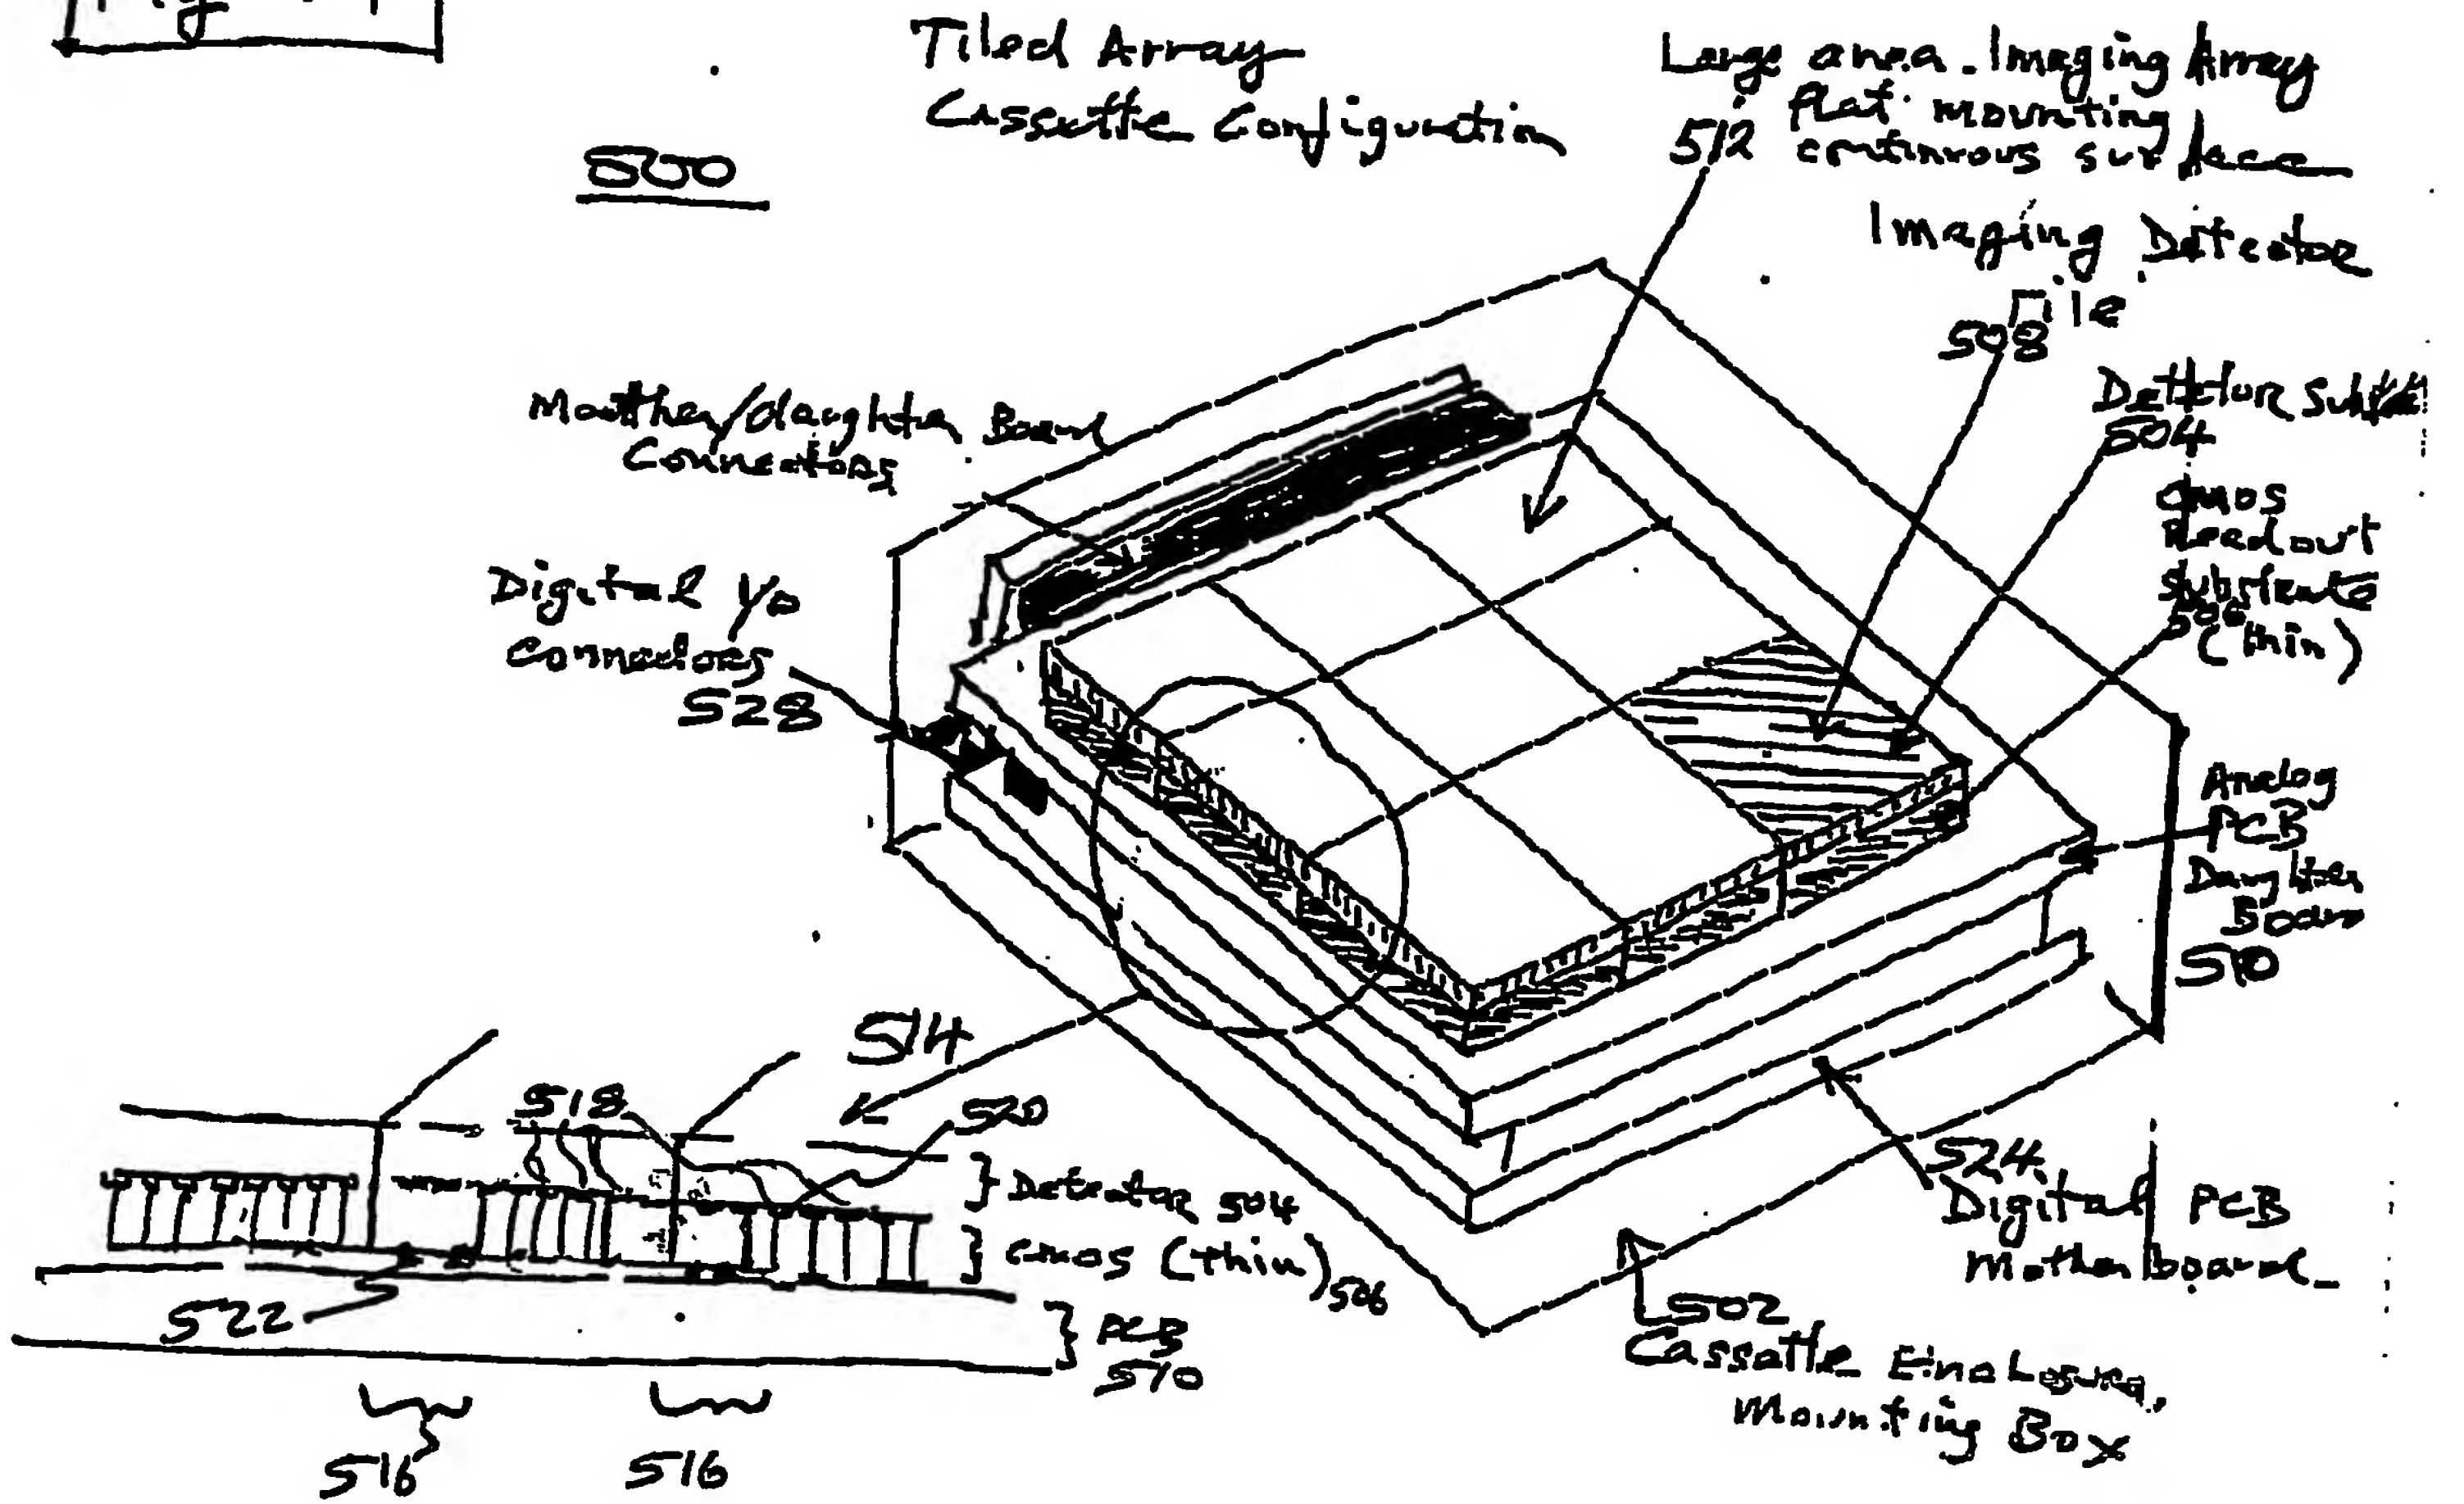 Tiled Array
Cassette Configuration
500
Large area Imaging Array
512 flat mounting
continuous surface
Imaging Detector
Tile
508
Detector
504
CMOS
Readout
Substrate
506
(thin)
Moather/daughter Board
Connectors
Digital I/O
Connectors
528
Analog
PCB
Daughter
Board
510
514
518
520
} Detector 504
} CMOS (thin) 506
522
} PCB
510
516
516
524
Digital PCB
Motherboard
502
Cassette Enclosure,
Mounting Box